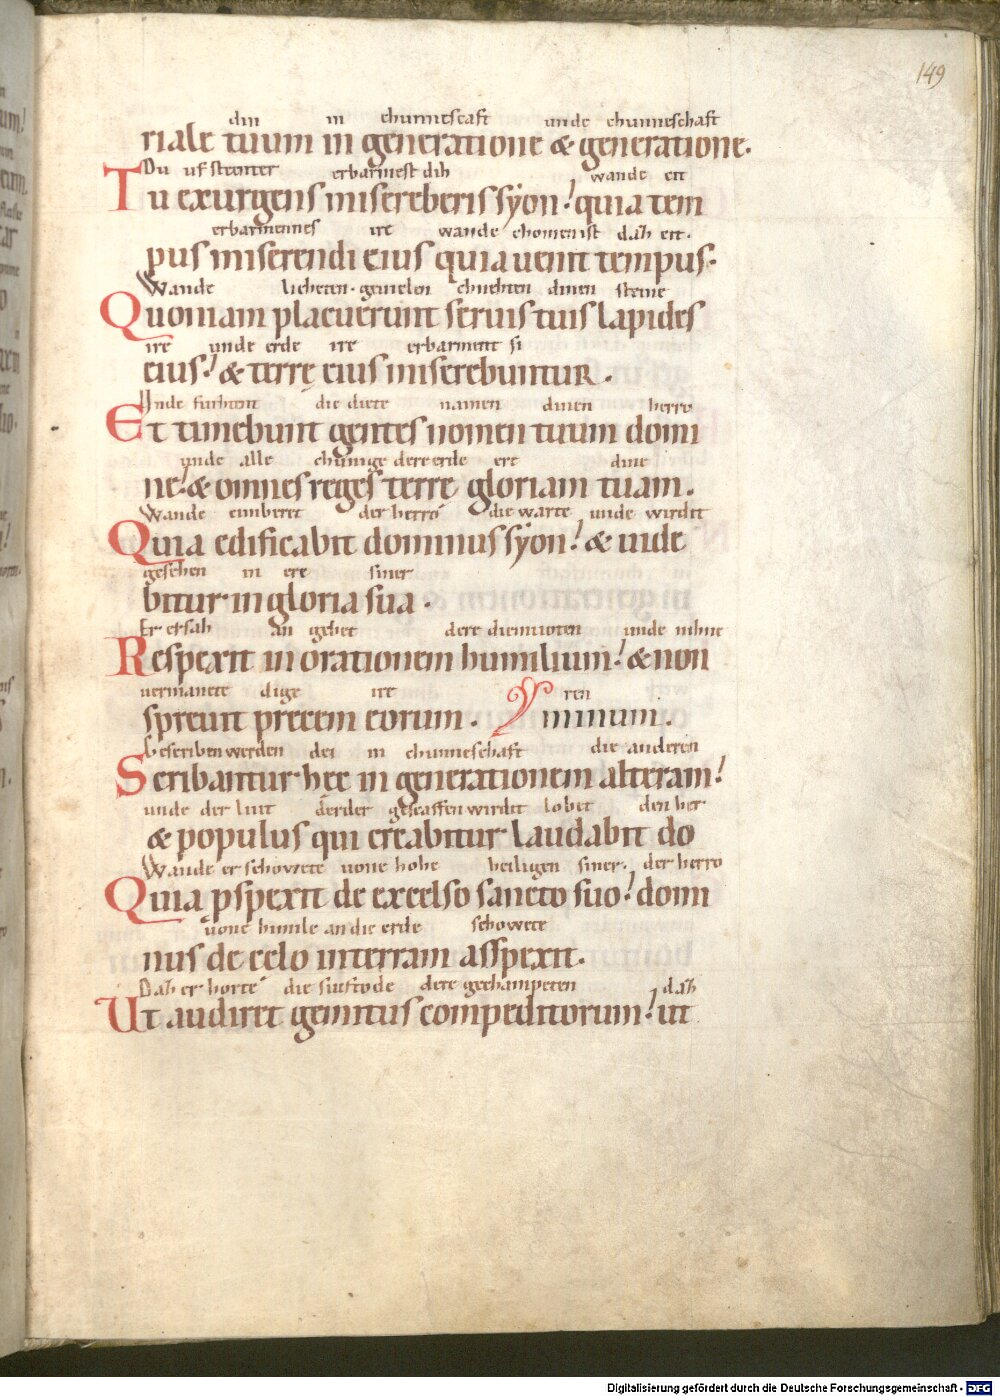 149
din in chunnescaft unde chunneschaft
riale tuum in generatione & generatione.
Du ufstenter erbarmest dih wande cit
Tu exurgens misereberis syon! quia tem
erbarmennes ire wande chomen ist daz cit.
pus miserendi eius quia uenit tempus.
Wande licheten. geuielen chnehten dinen steine
Quoniam placuerunt seruis tuis lapides
ire unde erde ire erbarment si
eius! & terrę eius miserebuntur.
Unde furhtent die diete namen dinen herro
Et timebunt gentes nomen tuum domi
unde alle chunige dere erde ere dine
ne! & omnes reges terrę gloriam tuam.
Wande cimberet der herro die warte unde wirdit
Quia edificabit dominus syon! & uide
gesehen in ere siner
bitur in gloria sua.
Er ersah an gebet dere diemuoten unde nihne
Respexit in orationem humilium! & non
uermanete dige ire ren
spreuit precem eorum. minum.
Bescriben werden dei in chunneschaft die anderen
Scribantur hec in generationem alteram!
unde der liut derder gescaffen wirdit lobet den her
& populus qui creabitur laudabit do
Wande er schowete uone hohe heiligen siner. der herro
Quia pspexit de excelso sancto suo! domi
uone himile an die erde schowete
nus de celo in terram asspexit.
Daz er horte die suftode dere gechampeten daz
Ut audiret gemitus compeditorum! ut
Digitalisierung gefördert durch die Deutsche Forschungsgemeinschaft - DFG